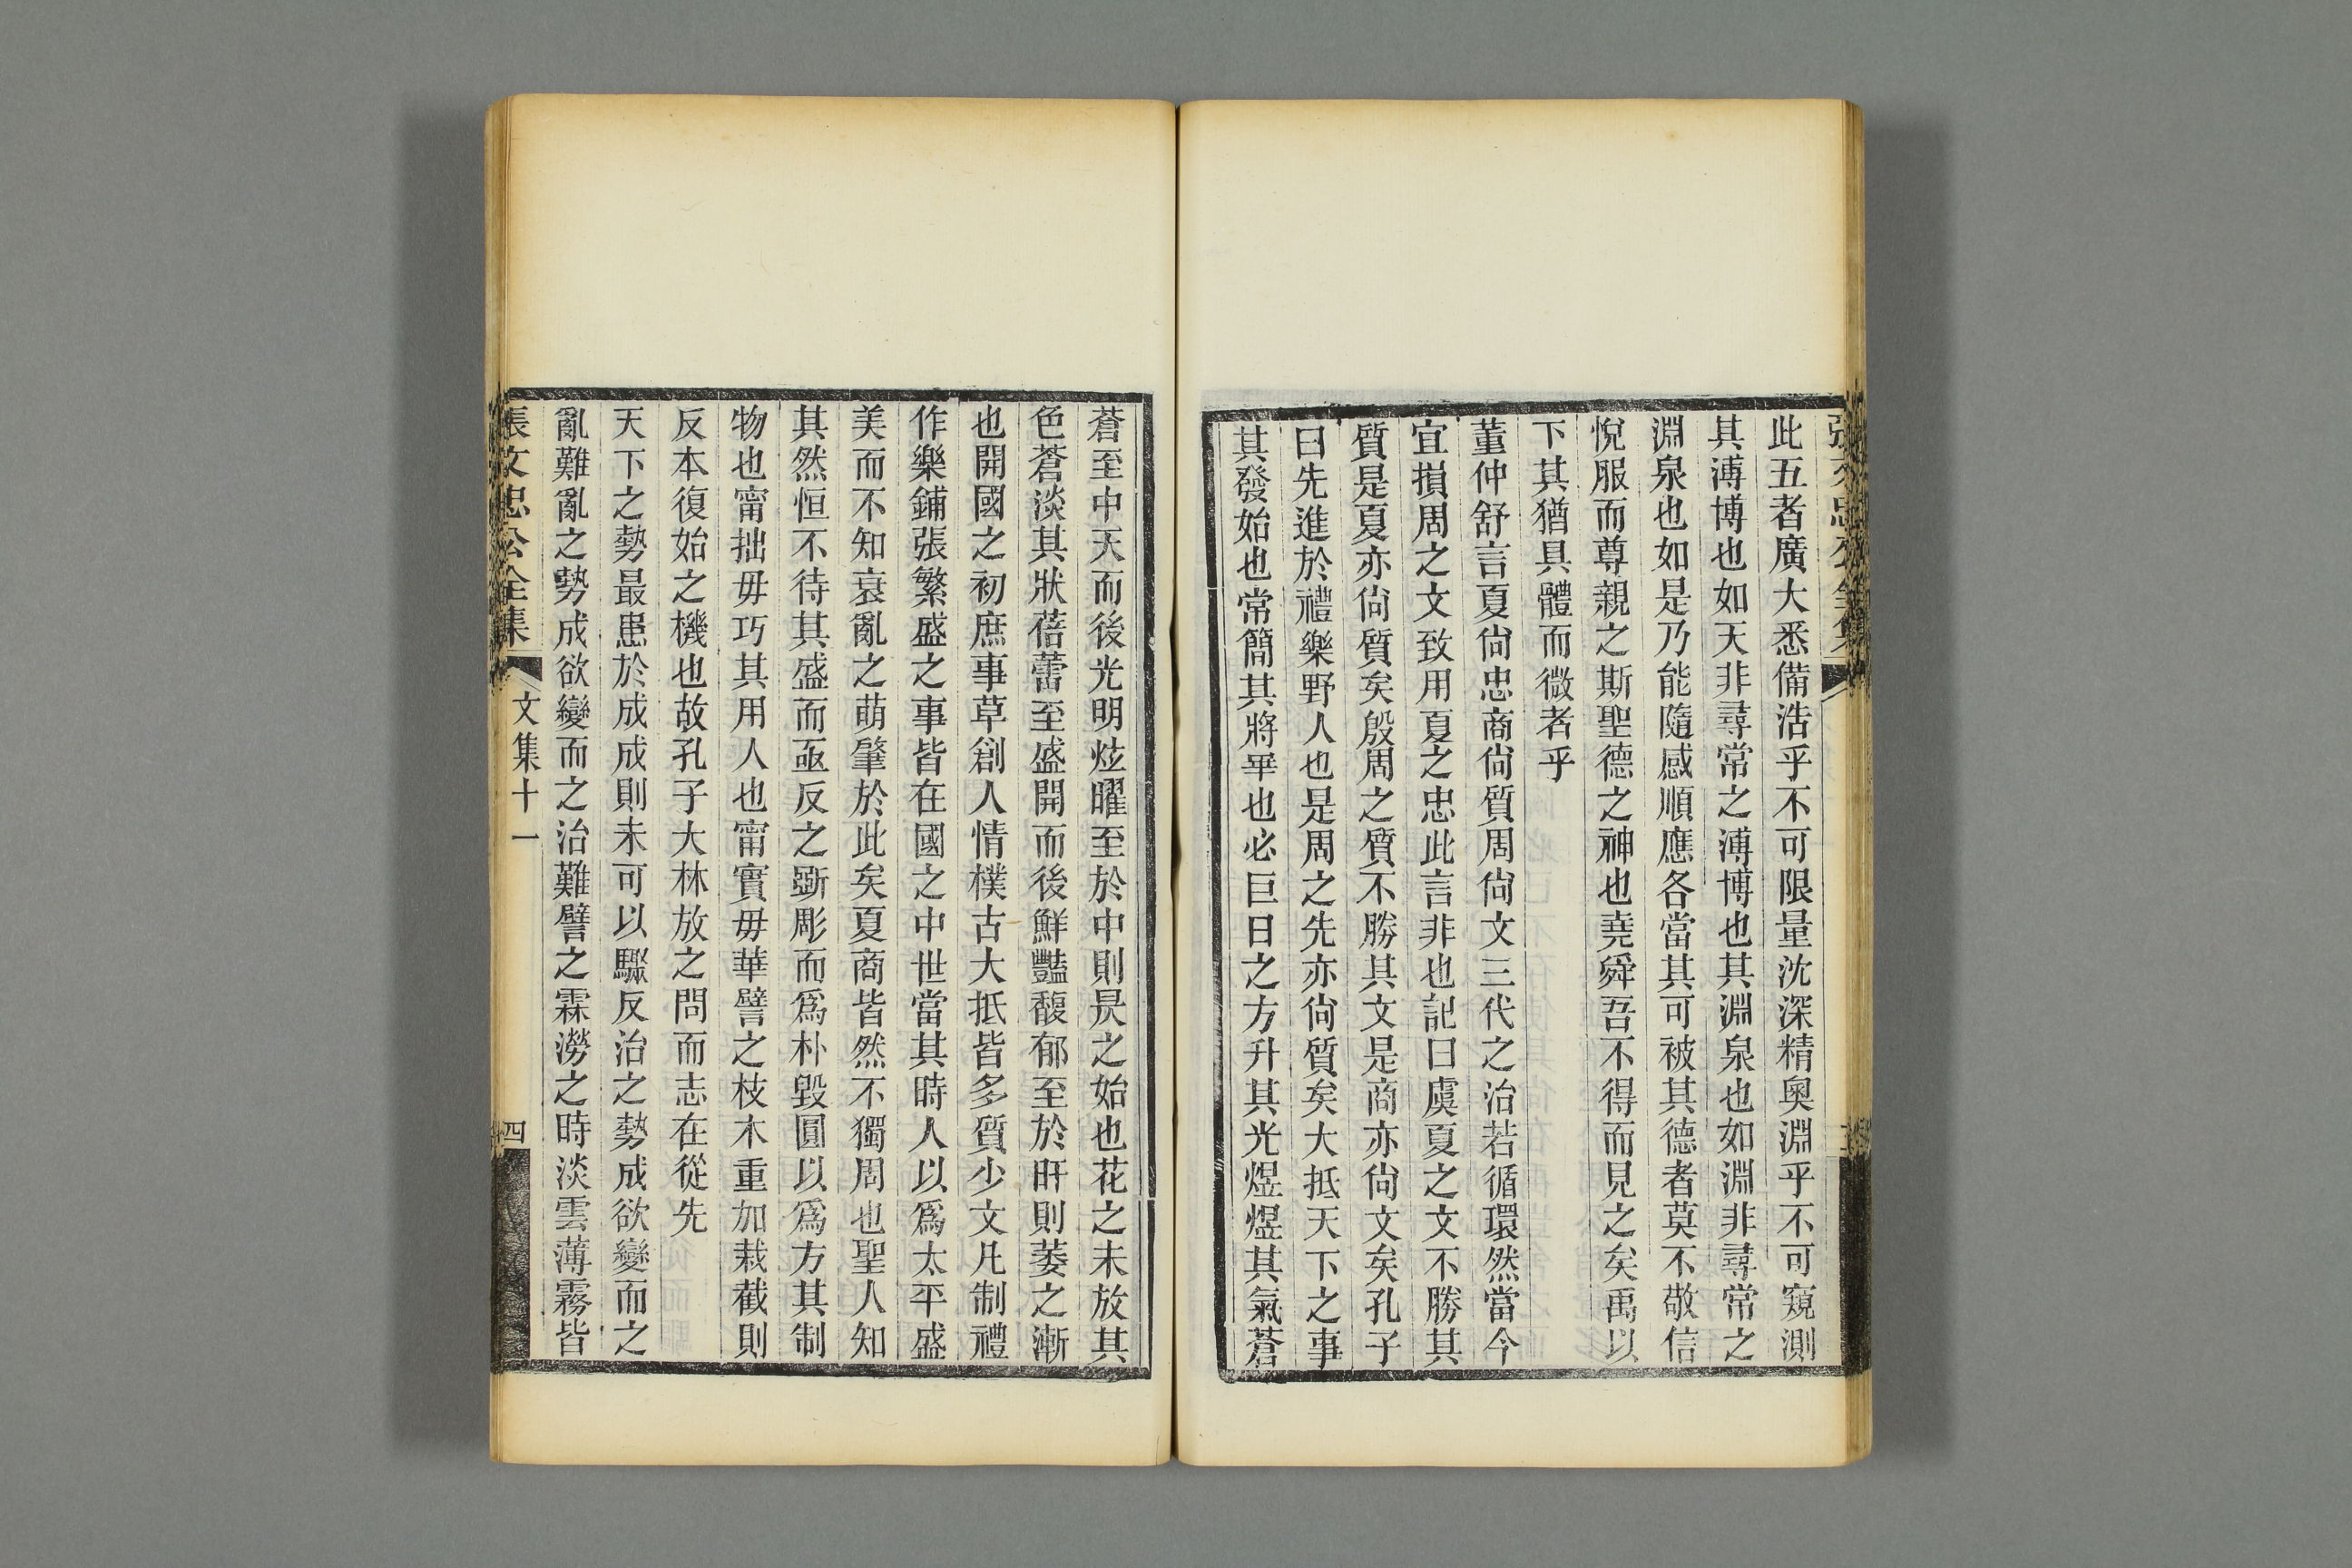 此五者廣大悉備浩乎不可限量沈深精奧淵乎不可窺測
其溥博也如天非尋常之溥博也其淵泉也如淵非尋常之
淵泉也如是乃能隨感順應各當其可被其德者莫不敬信
悅服而尊親之斯聖德之神也堯舜吾不得而見之矣禹以
下其猶具體而微者乎
董仲舒言夏尙忠商尙質周尙文三代之治若循環然當今
宜損周之文致用夏之忠此言非也記曰虞夏之文不勝其
質是夏亦尙質矣殷周之質不勝其文是商亦尙文矣孔子
曰先進於禮樂野人也是周之先亦尙質矣大抵天下之事
其發始也常簡其將畢也必巨日之方升其光煜煜其氣蒼
蒼至中天而後光明炫曜至於中則昃之始也花之未放其
色蒼淡其狀蓓蕾至盛開而後鮮豔馥郁至於旰則萎之漸
也開國之初庶事草創人情樸古大抵皆多質少文凡制禮
作樂鋪張繁盛之事皆在國之中世當其時人以爲太平盛
美而不知衰亂之萌肇於此矣夏商皆然不獨周也聖人知
其然恒不待其盛而亟反之斲彫而爲朴毀圓以爲方其制
物也甯拙毋巧其用人也甯實毋華譬之枝木重加栽截則
反本復始之機也故孔子大林放之問而志在從先
天下之勢最患於成成則未可以驟反治之勢成欲變而之
亂難亂之勢成欲變而之治難譬之霖澇之時淡雲薄霧皆
張文忠公全集
文集十一
四